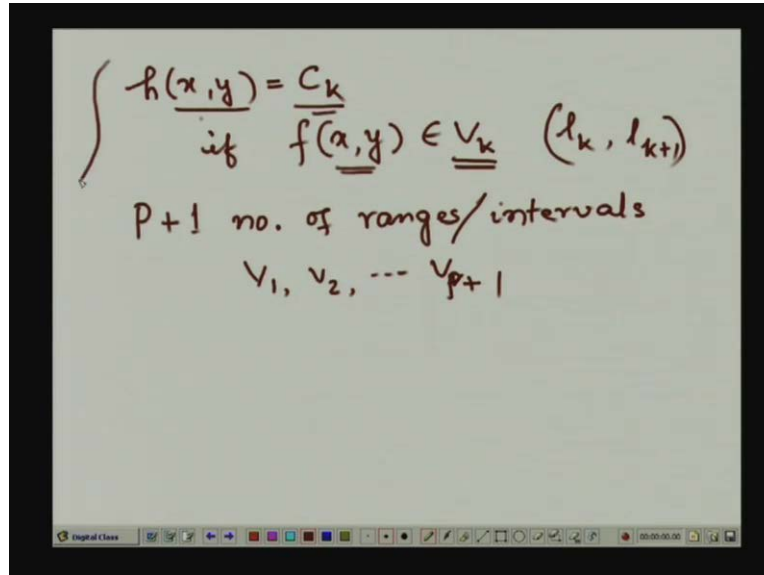 h(x,y) = C_k
if f(x,y) ∈ V_k (l_k, l_{k+1})
P+1 no. of ranges/intervals
V_1, V_2, --- V_{P+1}
Digital Class 00:00:00.00